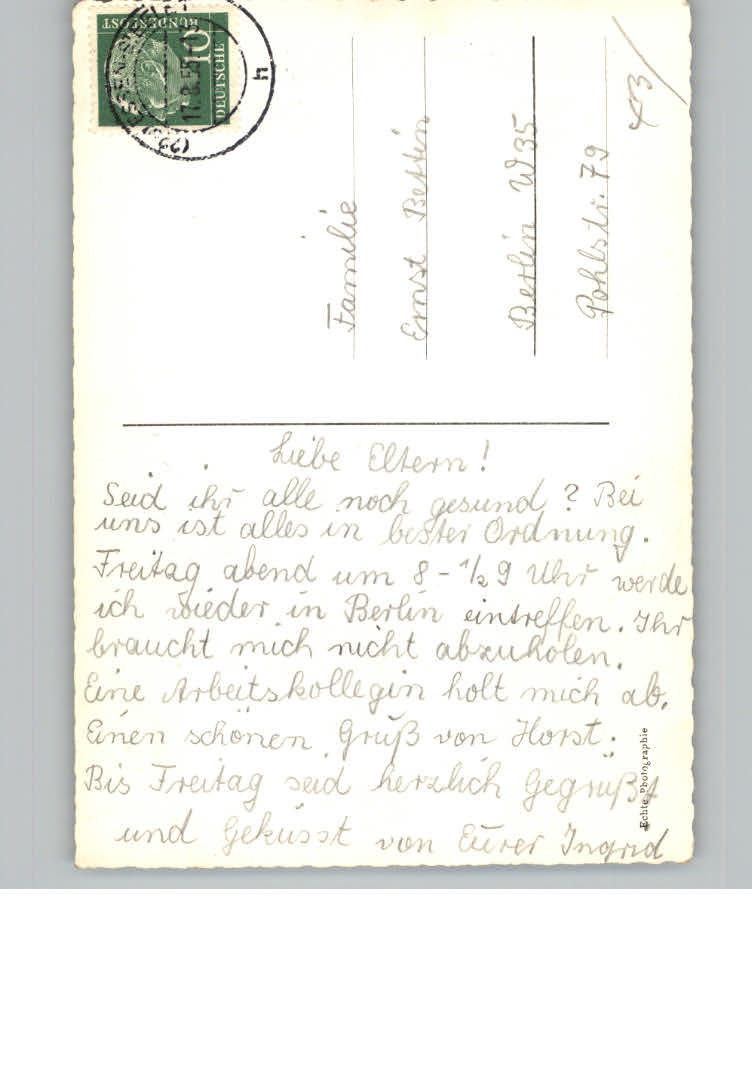 DEUTSCHE
10
BUNDESPOST
17.8.55
h
Familie
Ernst Bettin
Berlin W35
Pohlstr. 79
Liebe Eltern!
Seid ihr alle noch gesund? Bei
uns ist alles in bester Ordnung.
Freitag abend um 8 - 1/2 9 Uhr werde
ich wieder in Berlin eintreffen. Ihr
braucht mich nicht abzuholen.
Eine Arbeitskollegin holt mich ab.
Einen schönen Gruß von Horst.
Bis Freitag seid herzlich Gegrüßt
und Geküsst von Eurer Ingrid
Echte Photographie